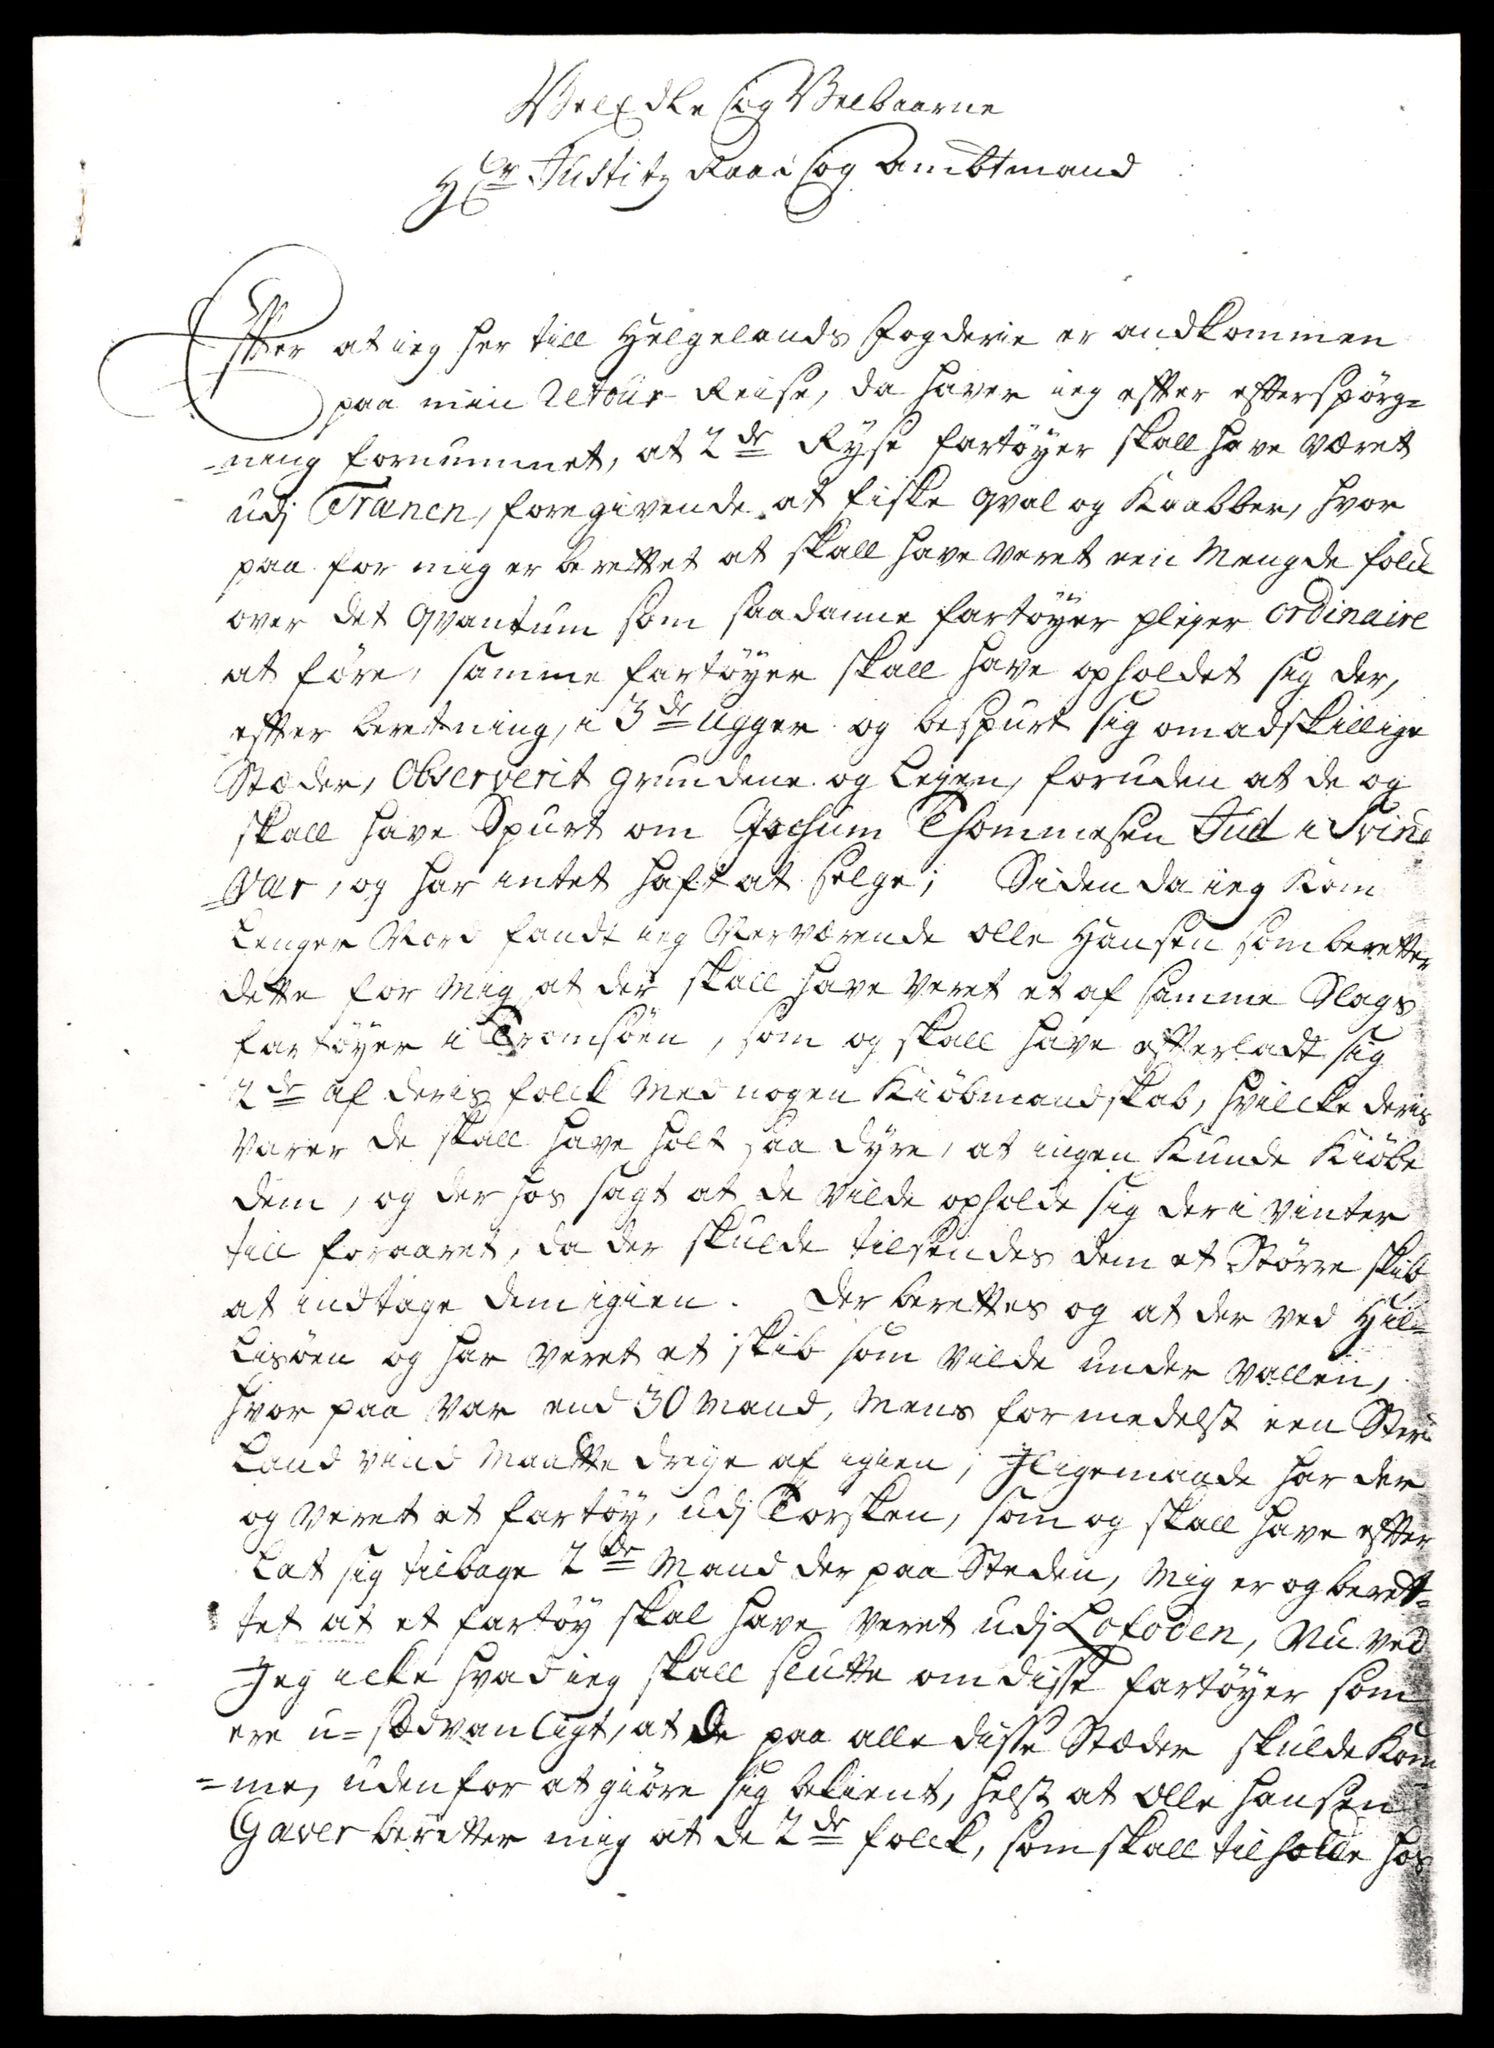 WelEdle og Velbaarne
Hr Justitz Raad og Ambtmand
Efter at ieg her till Helgelands Fogderie er andkommen
paa min Retour Reise, da haver ieg efter efterspörg=
=ning fornummet, at 2de Ryse fartöyer skall have været
udj Trænen, foregivende at fiske qval og Kaabber, hvor
paa for mig er berettet at skall have veret een Mengde folck
over det qvantum som saadanne fartöyer pleyer ordinaire
at före, samme fartöyer skall have opholdet sig der,
efter beretning, i 3de ugger og bespurt sig om adskillige
Stæder, Observerit grundene og Leyen, foruden at de og
skall have Spurt om Jochum Thommesen Jud i Svine
=vær, og har intet haft at selge; Siden da ieg Kom
Lenger Nord fandt ieg Nerværende olle Hansen som beretter
dette for Mig at der skall have veret et af samme Slags
fartöyer i Tromsöen, som og skall have efterladt sig
2de af deris folck Med nogen Kiöbmandskab, hvilcke deris
varer de skall have holt saa dyre, at ingen Kunde Kiöbe
dem, og der hos sagt at de vilde opholde sig der i vinter
till foraaret, da der skulde tilsendes dem et Större skib
at indtage dem igien. Der berettes og at der ved Hil=
Lisöen og har veret et skib som vilde under vallen,
hvor paa var end 30 Mand, Mens formedelst een Sterck
Land vind Maatte drije af igien, Jligemaade har der
og veret et fartöy, udj Torsken, som og skall have efter
Lat sig tilbage 2de Mand der paa Steden, Mig er og beret=
tet at et fartöy skal have veret udj Lofoden, Nu ved
Jeg icke hvad ieg skall slutte om disse fartöyer som
ere u=sædvanligt, at de paa alle disse Stæder skulde Kom
=me, uden for at giöre sig bekient, helst at olle Hansen
Gaver beretter mig at de 2de folck, som skall tilholde hos